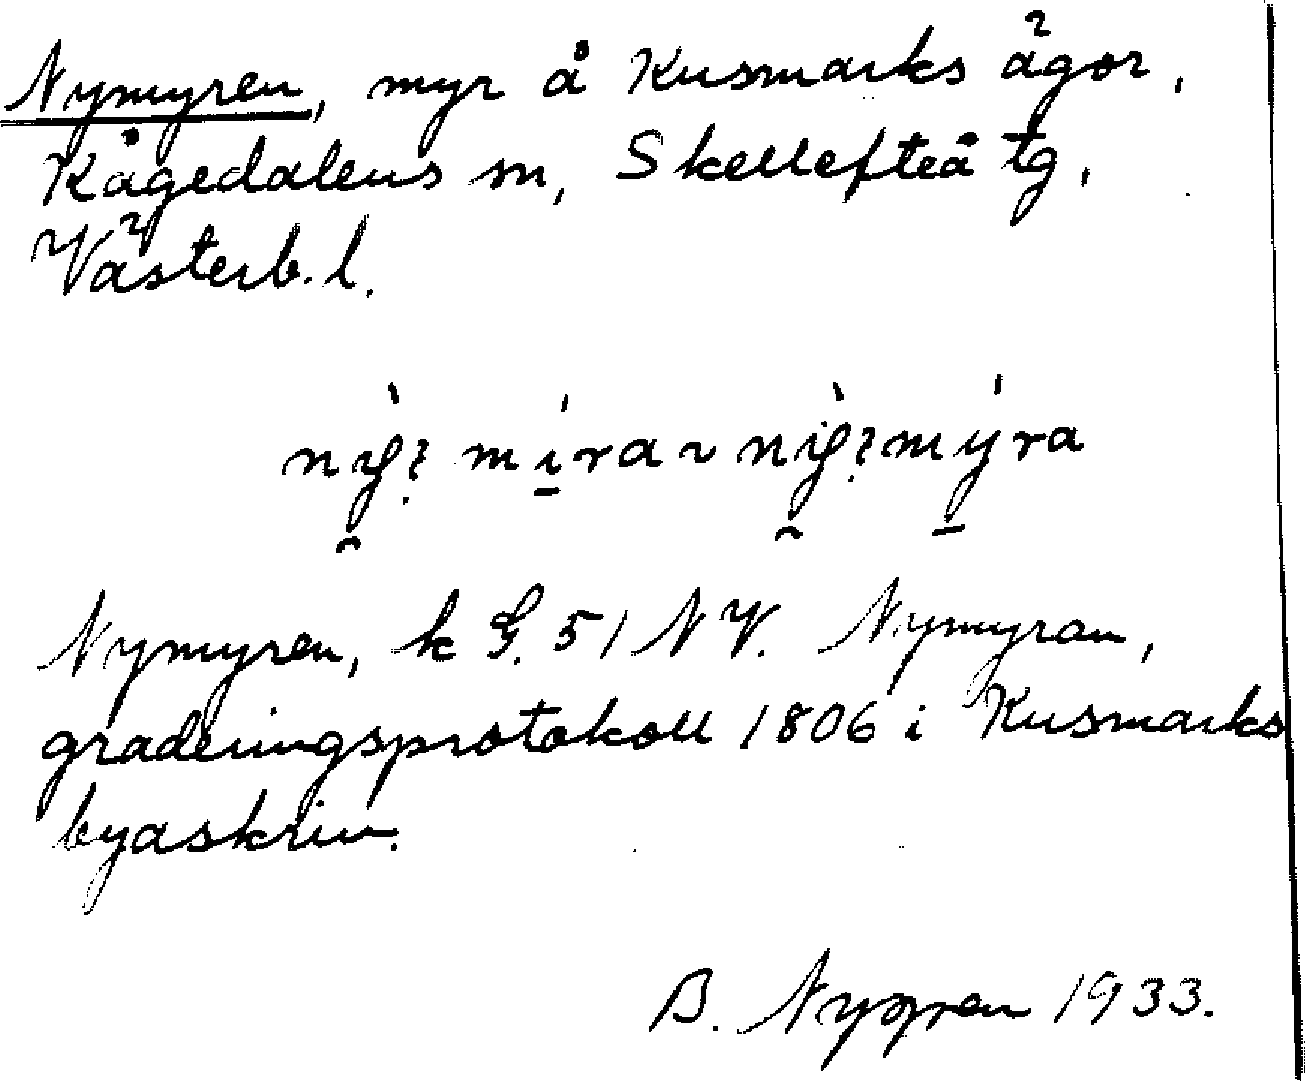 Nymyren, myr å Kusmarks ägor,
Kågedalens sn, Skellefteå tg,
Västerb. l.
Nymyren, k G. 51 NV. Nymyran,
graderingsprotokoll 1806 i Kusmarks
byaskrin.
B. Nygren 1933.